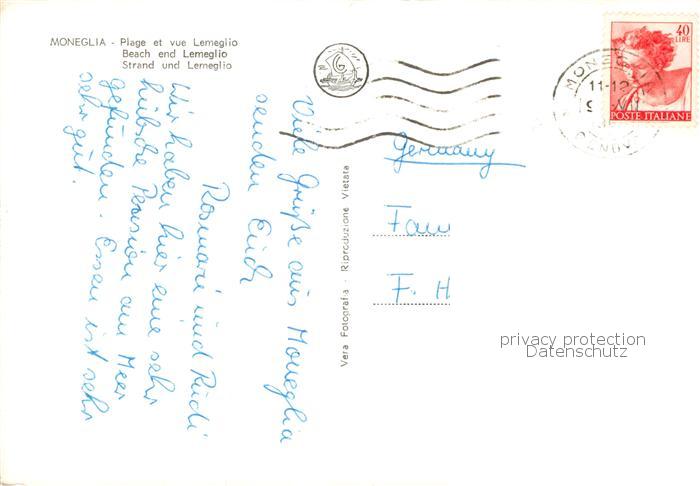 MONEGLIA - Plage et vue Lemeglio
Beach end Lemeglio
Strand und Lemeglio
Viele Grüße aus Moneglia
senden Euch
Rosmarie und Rudi
Wir haben hier eine sehr
hübsche Pension am Meer
gefunden. Essen ist sehr
sehr gut.
Vera Fotografia - Riproduzione Vietata
40
LIRE
POSTE ITALIANE
MONEGLIA
11-12
GENOVA
Germany
Fam
F. H
privacy protection
Datenschutz